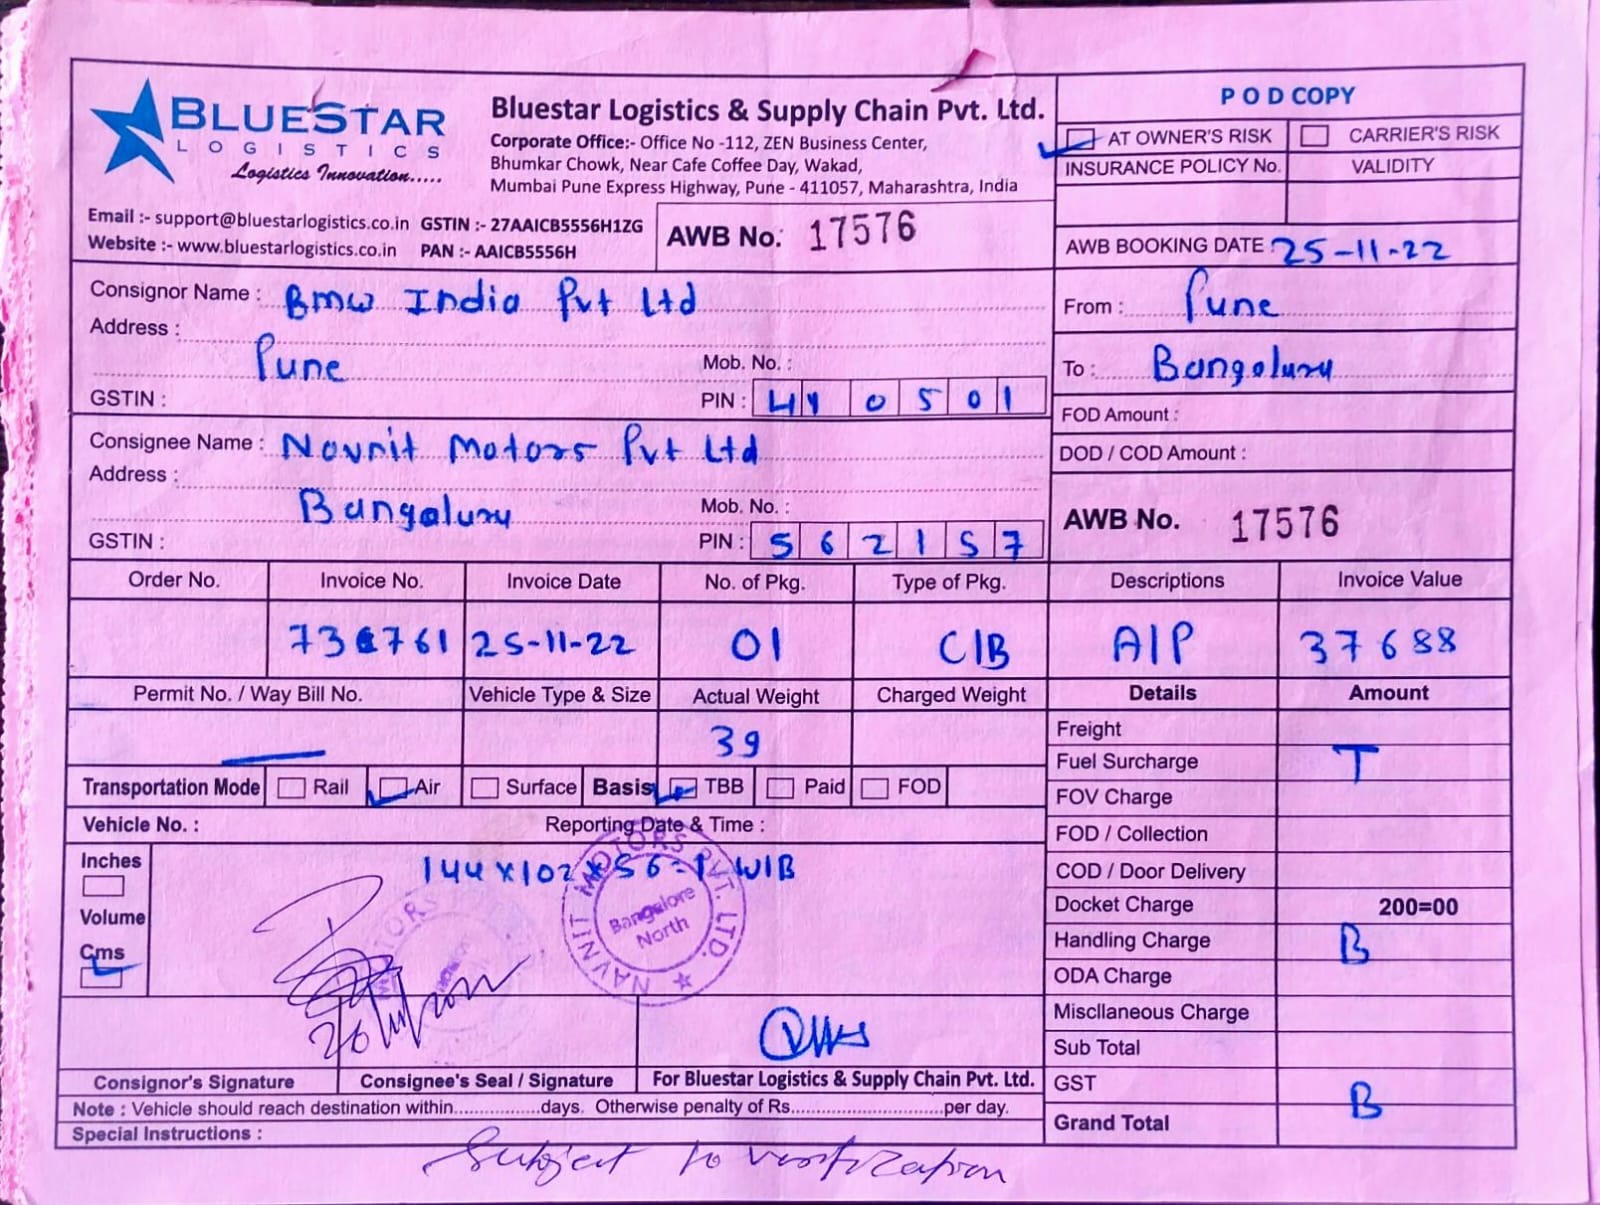 BLUESTAR
LOGISTICS
Logistics Innovation.....
Bluestar Logistics & Supply Chain Pvt. Ltd.
Corporate Office:- Office No -112, ZEN Business Center,
Bhumkar Chowk, Near Cafe Coffee Day, Wakad,
Mumbai Pune Express Highway, Pune - 411057, Maharashtra, India
Email :- support@bluestarlogistics.co.in GSTIN :- 27AAICB5556H1ZG
Website :- www.bluestarlogistics.co.in PAN :- AAICB5556H
AWB No. 17576
POD COPY
AT OWNER'S RISK CARRIER'S RISK
INSURANCE POLICY No. VALIDITY
AWB BOOKING DATE : 25-11-22
Consignor Name : BMW India Pvt Ltd
Address :
Pune
Mob. No. :
GSTIN :
PIN : 410501
From : Pune
To : Bangaluru
FOD Amount :
DOD / COD Amount :
Consignee Name : Navnit Motors Pvt Ltd
Address :
Bangaluru
Mob. No. :
GSTIN :
PIN : 562157
AWB No. 17576
Order No. Invoice No. Invoice Date No. of Pkg. Type of Pkg. Descriptions Invoice Value
25-11-22 01 C/B A/P 37688
Permit No. / Way Bill No. Vehicle Type & Size Actual Weight Charged Weight Details Amount
39
Freight
Fuel Surcharge T
FOV Charge
FOD / Collection
COD / Door Delivery
Docket Charge 200=00
Handling Charge B
ODA Charge
Miscllaneous Charge
Sub Total
GST
B
Grand Total
Transportation Mode Rail Air Surface Basis TBB Paid FOD
Vehicle No. : Reporting Date & Time :
Inches
Volume
Cms
144x102x56=1 W/B
NAVNIT MOTORS PVT. LTD.
Bangalore
North
Consignor's Signature Consignee's Seal / Signature For Bluestar Logistics & Supply Chain Pvt. Ltd.
Note : Vehicle should reach destination within.................days. Otherwise penalty of Rs..............................per day.
Special Instructions :
Subject to verification